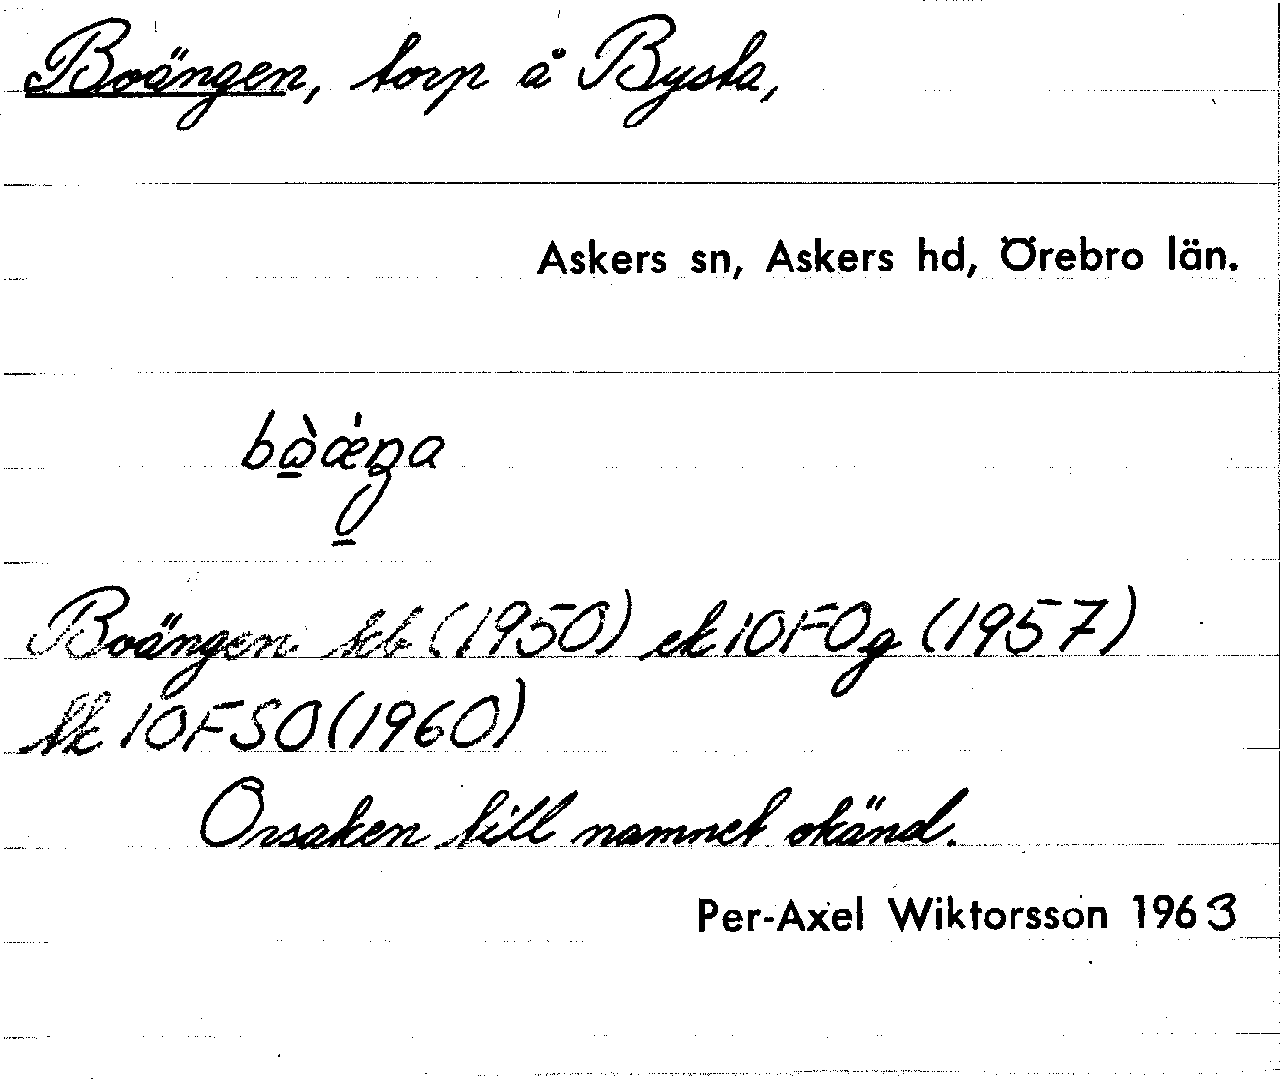 Boängen, torp å Bysta,
Askers sn, Askers hd, Örebro län.
bò̲ǽŋa
Boängen kb (1950) ek 10F0g (1957)
tk 10FSO (1960)
Orsaken till namnet okänd.
Per-Axel Wiktorsson 1963